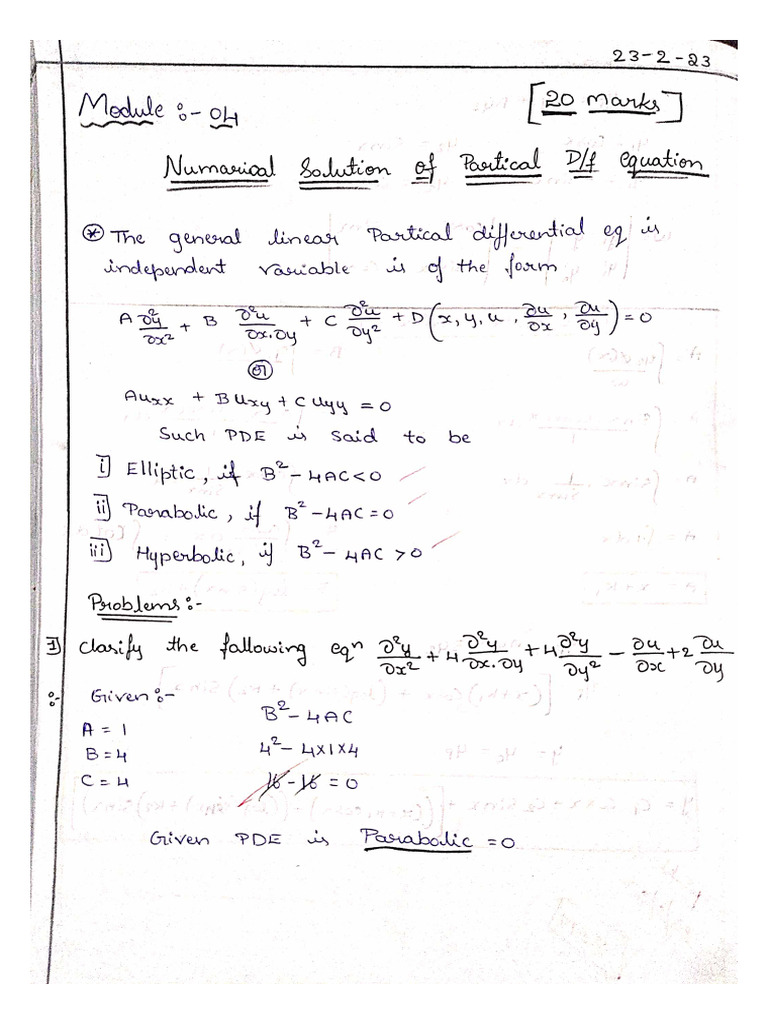 23-2-23
Module :- 04
[20 marks]
Numarical Solution of Partical D/f equation
* The general linear Partical differential eq is
independent variable is of the form
A ∂²y/∂x² + B ∂²u/∂x.∂y + C ∂²u/∂y² + D(x, y, u, ∂u/∂x, ∂u/∂y) = 0
or
Auxx + Buxy + Cuyy = 0
Such PDE is said to be
i] Elliptic, if B² - 4AC < 0
ii] Parabolic, if B² - 4AC = 0
iii] Hyperbolic, if B² - 4AC > 0
Problems :-
1] Clarify the following eqn ∂²y/∂x² + 4 ∂²y/∂x.∂y + 4 ∂²y/∂y² - ∂u/∂x + 2 ∂u/∂y
:- Given :-
B² - 4AC
A = 1
4² - 4×1×4
B = 4
C = 4
16 - 16 = 0
Given PDE is Parabolic = 0